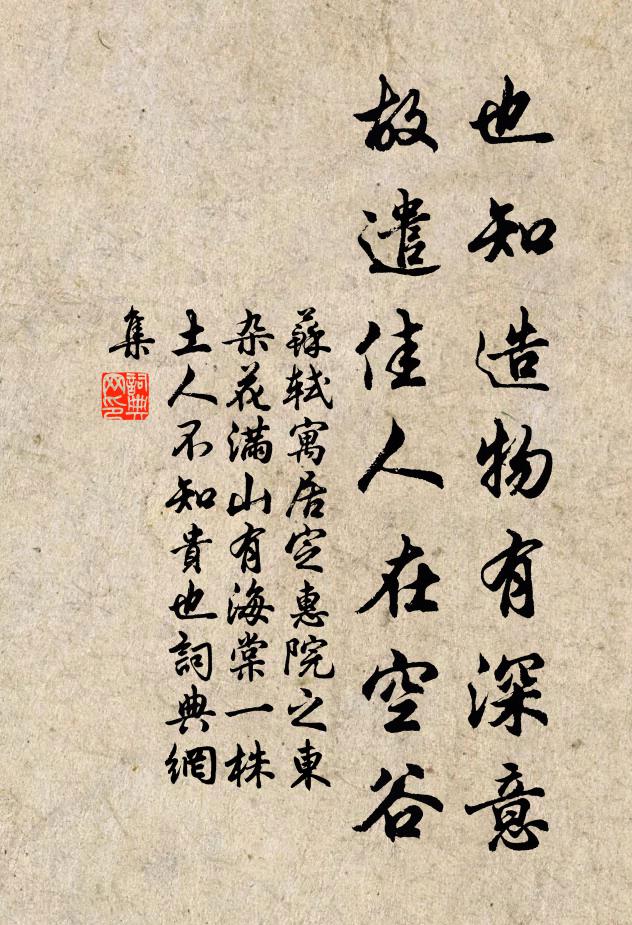 也知造物有深意
故遣佳人在空谷
蘇軾寓居定惠院之東
杂花满山有海棠一株
土人不知貴也詞典網
集
詞典
网印